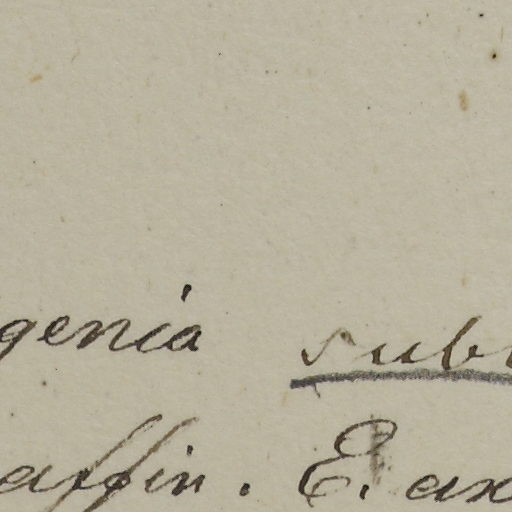 genia sub
affin. E. ax